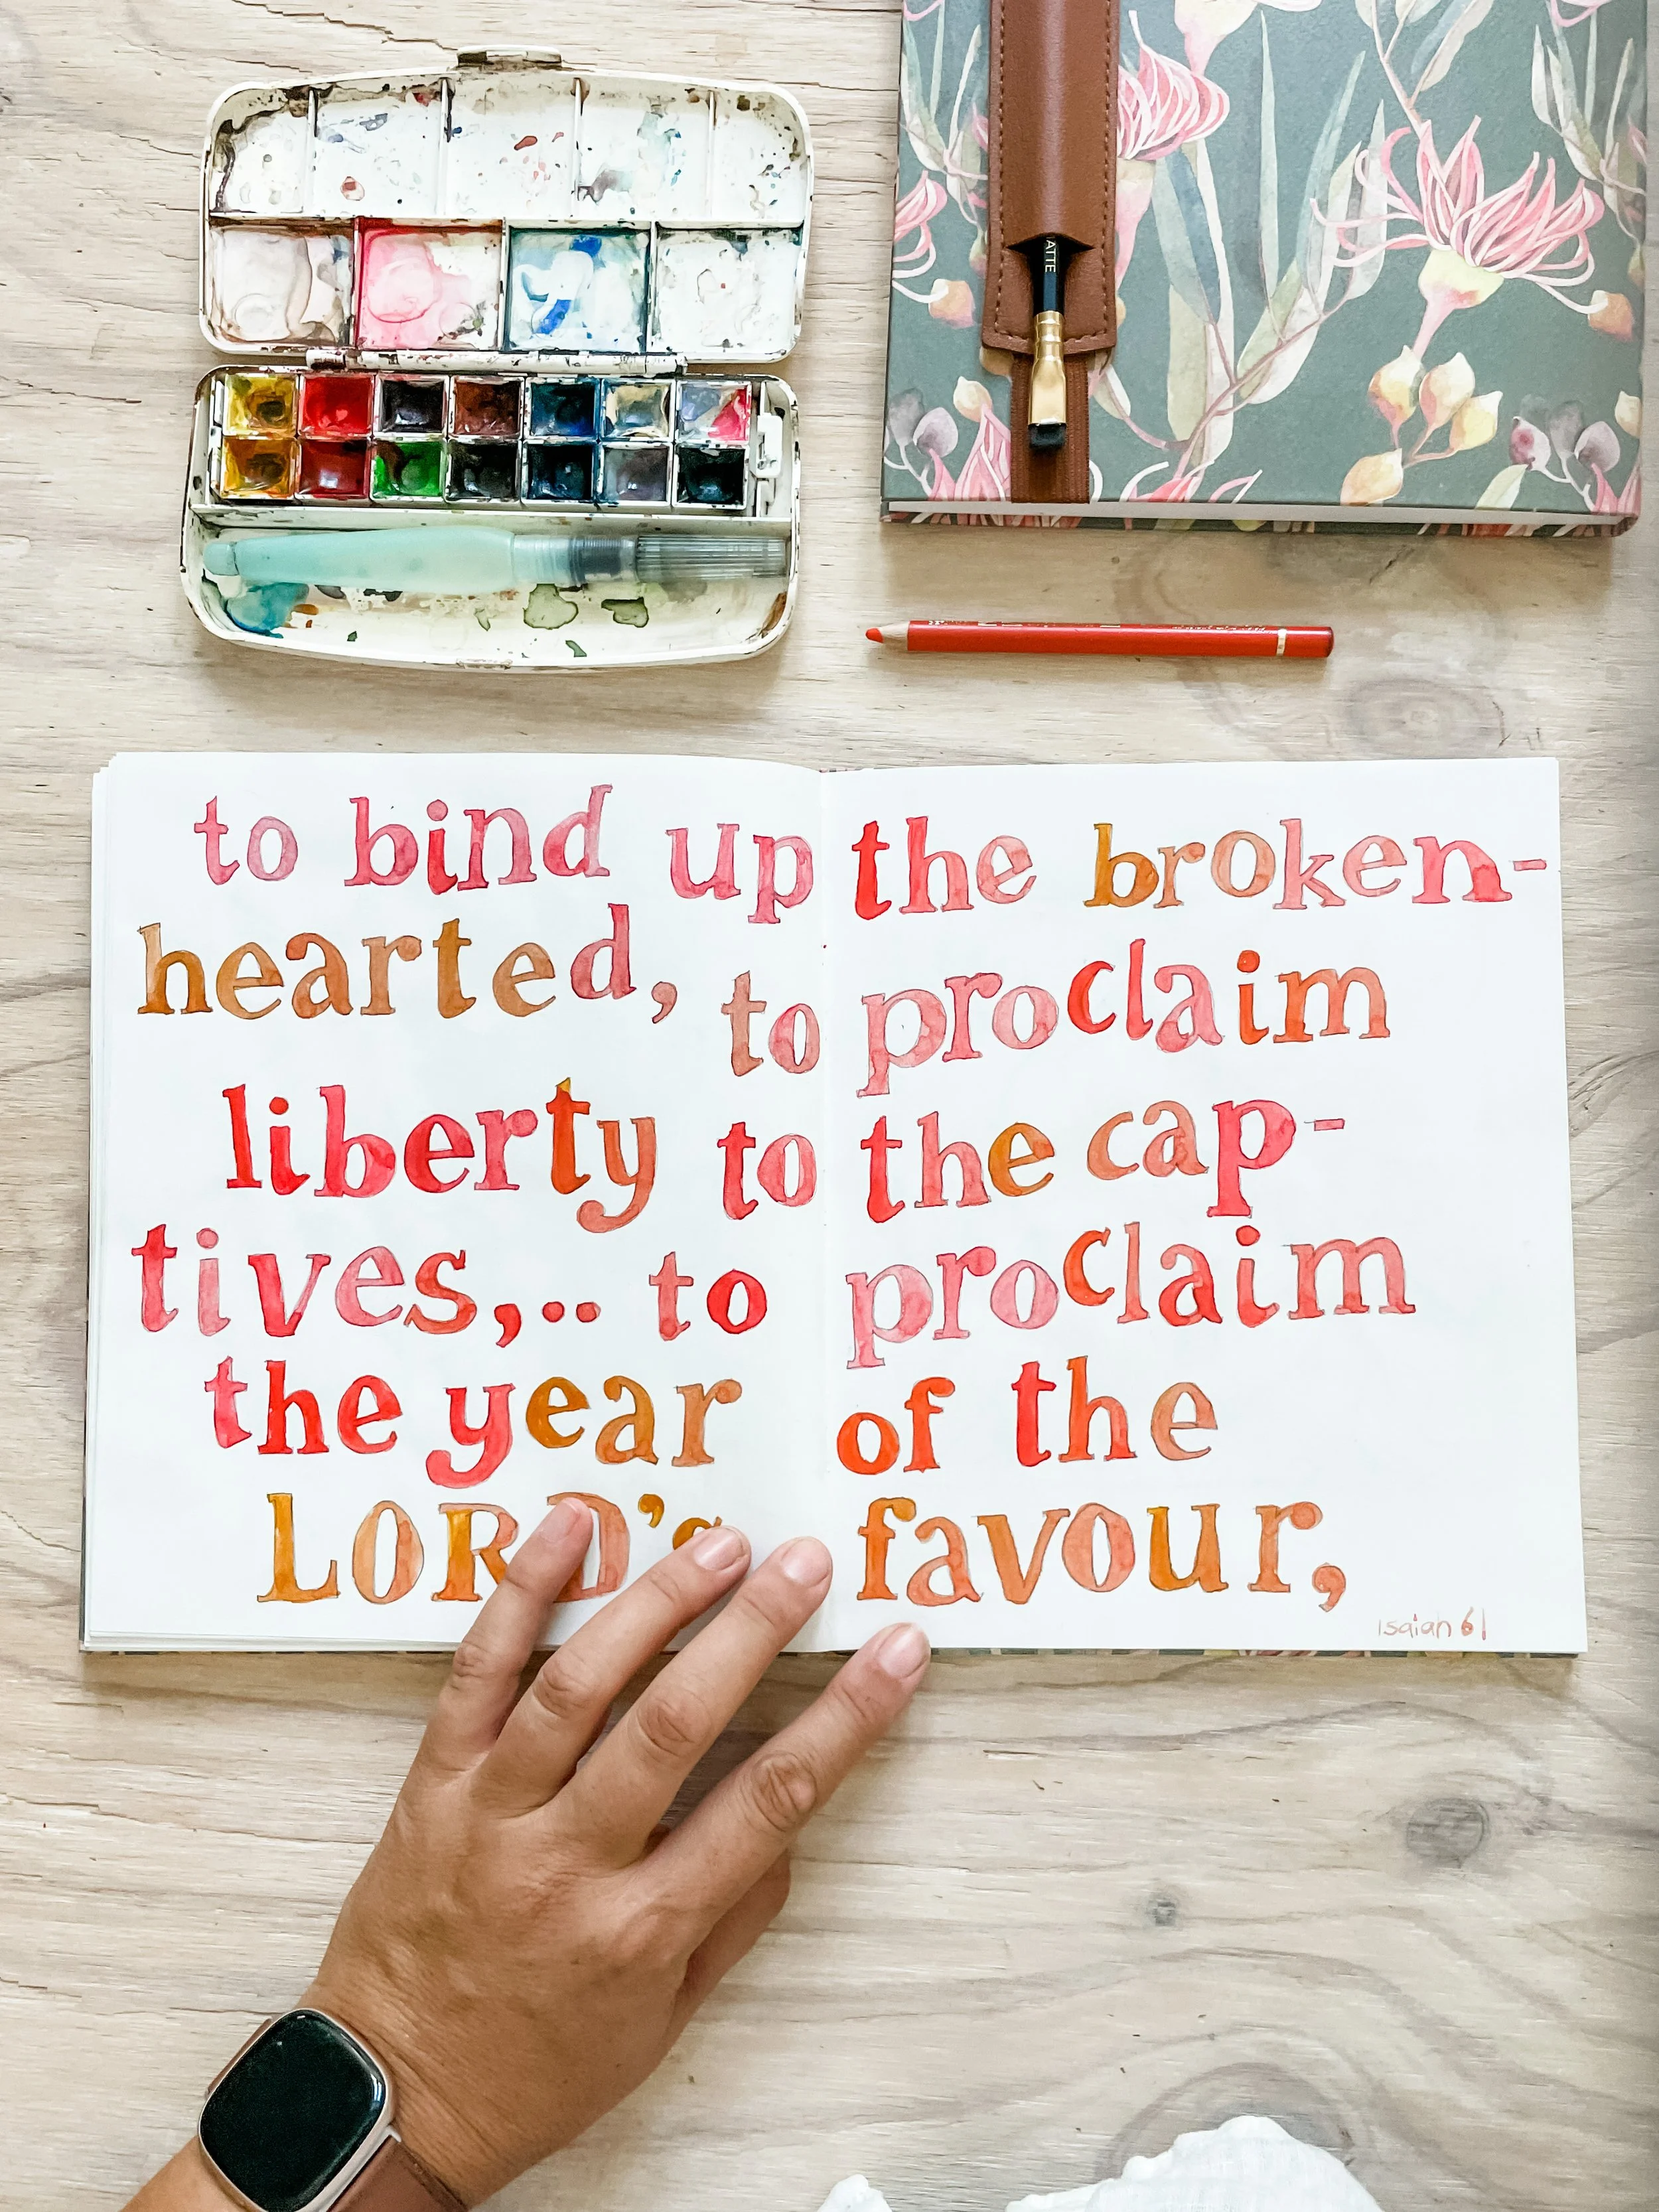 ATTE
to bind up the broken-
hearted, to proclaim
liberty to the cap-
tives,.. to proclaim
the year of the
LORD's favour,
Isaiah 61